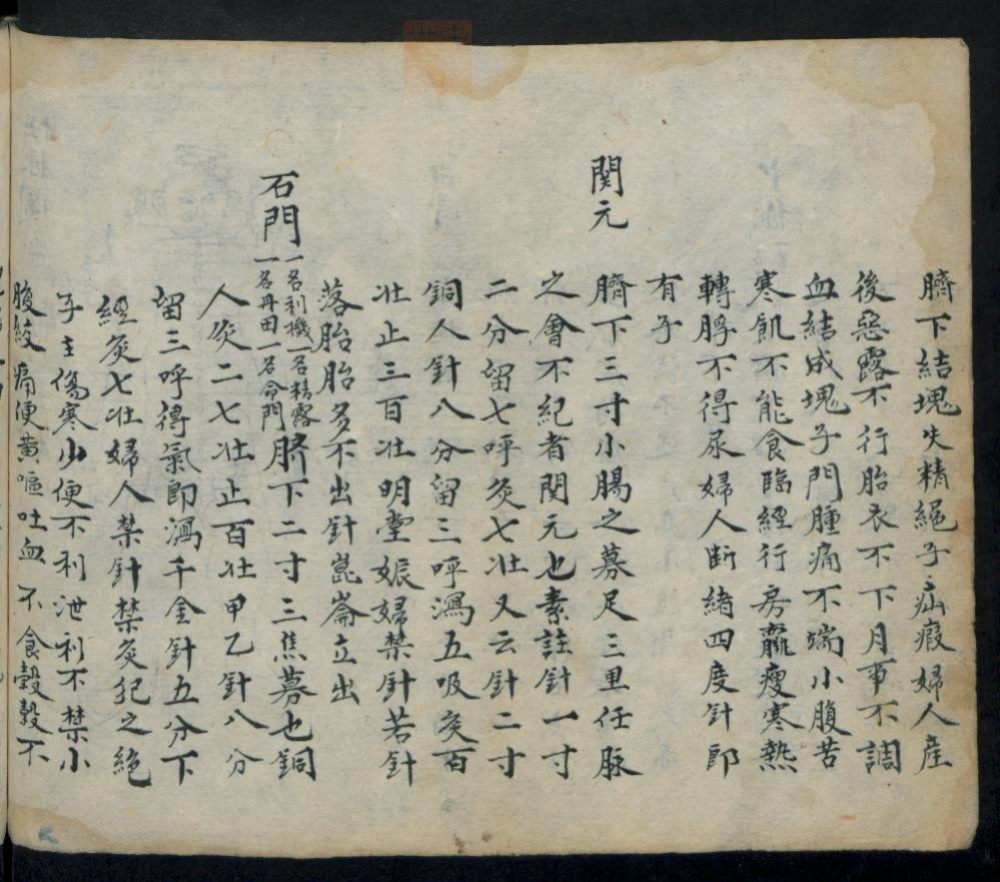 臍下結塊失精絕子疝瘕婦人産
後惡露不行胎衣不下月事不調
血結成塊子門腫痛不端小腹苦
寒飢不能食臨經行房羸瘦寒熱
轉脬不得尿婦人断緒四度針即
有子
関元
臍下三寸小腸之募足三里任脉
之會不紀者関元也素註針一寸
二分留七呼灸七壮又云針二寸
銅人針八分留三呼瀉五吸灸百
壮止三百壮明堂娠婦禁針若針
落胎胎多不出針崑崙立出
石門
一名利機一名精露
一名丹田一名命門
臍下二寸三焦募也銅
人灸二七壮止百壮甲乙針八分
留三呼得氣即瀉千金針五分下
經灸七壮婦人禁針禁灸犯之絕
子主傷寒少便不利泄利不禁小
腹絞痛便黄嘔吐血不食穀穀不